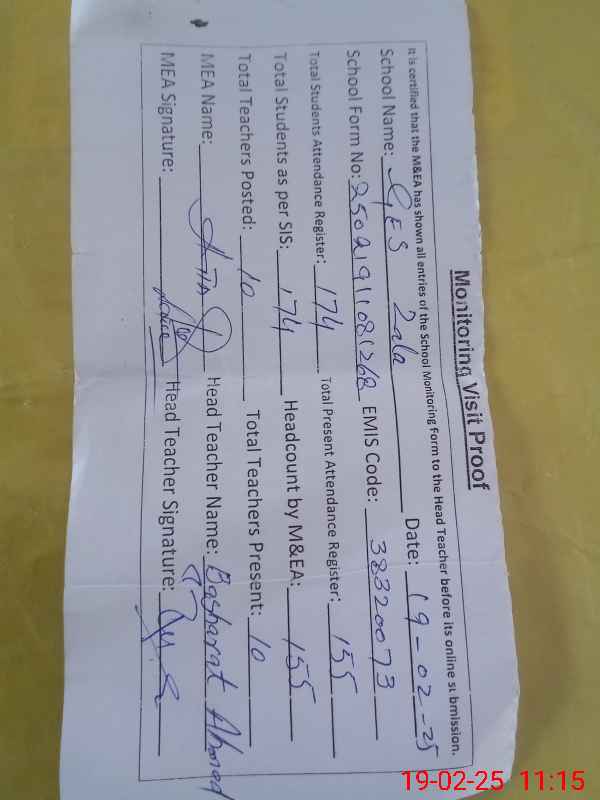 Monitoring Visit Proof
It is certified that the M&EA has shown all entries of the School Monitoring Form to the Head Teacher before its online submission.
School Name: GES Zala Date: 19-02-25
School Form No: 25021911081268 EMIS Code: 38320073
Total Students Attendance Register: 174 Total Present Attendance Register: 155
Total Students as per SIS: 174 Headcount by M&EA: 155
Total Teachers Posted: 10 Total Teachers Present: 10
MEA Name: Head Teacher Name: Basharat Ahmad
MEA Signature: Head Teacher Signature:
19-02-25 11:15